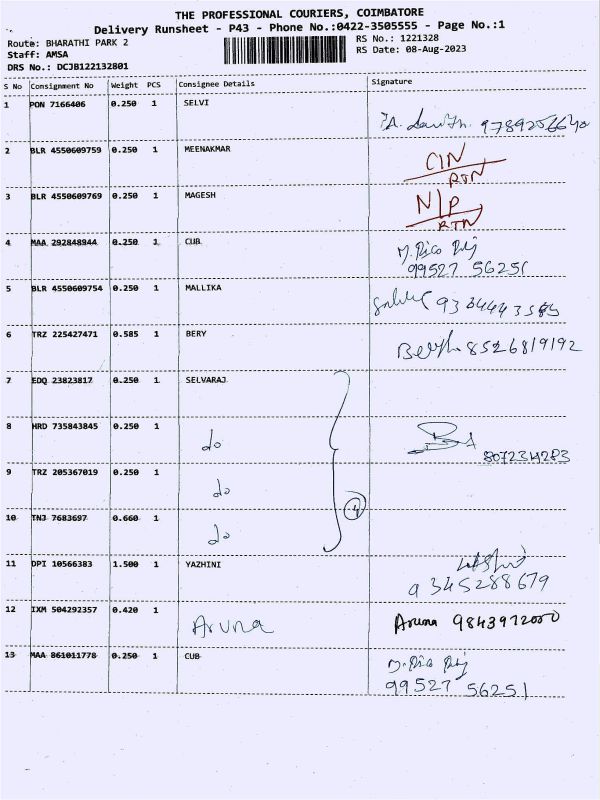 THE PROFESSIONAL COURIERS, COIMBATORE
Delivery Runsheet - P43 - Phone No.:0422-3505555 - Page No.:1
Route: BHARATHI PARK 2
RS No.: 1221328
Staff: AMSA
RS Date: 08-Aug-2023
DRS No.: DCJB122132801
S No Consignment No Weight PCS Consignee Details Signature
1 PON 7166406 0.250 1 SELVI
2 BLR 4550609759 0.250 1 MEENAKMAR CIN
RTN
3 BLR 4550609769 0.250 1 MAGESH N/P
RTN
4 MAA 292848944 0.250 1 CUB
99527 56251
5 BLR 4550609754 0.250 1 MALLIKA
6 TRZ 225427471 0.585 1 BERY 8526819192
7 EDQ 23823817 0.250 1 SELVARAJ
8 HRD 735843845 0.250 1 do
9 TRZ 205367019 0.250 1 do
4
10 TNJ 7683697 0.660 1 do
11 DPI 10566383 1.500 1 YAZHINI
9345288679
12 IXM 504292357 0.420 1 Aruna Aruna
13 MAA 861011778 0.250 1 CUB
99527 56251